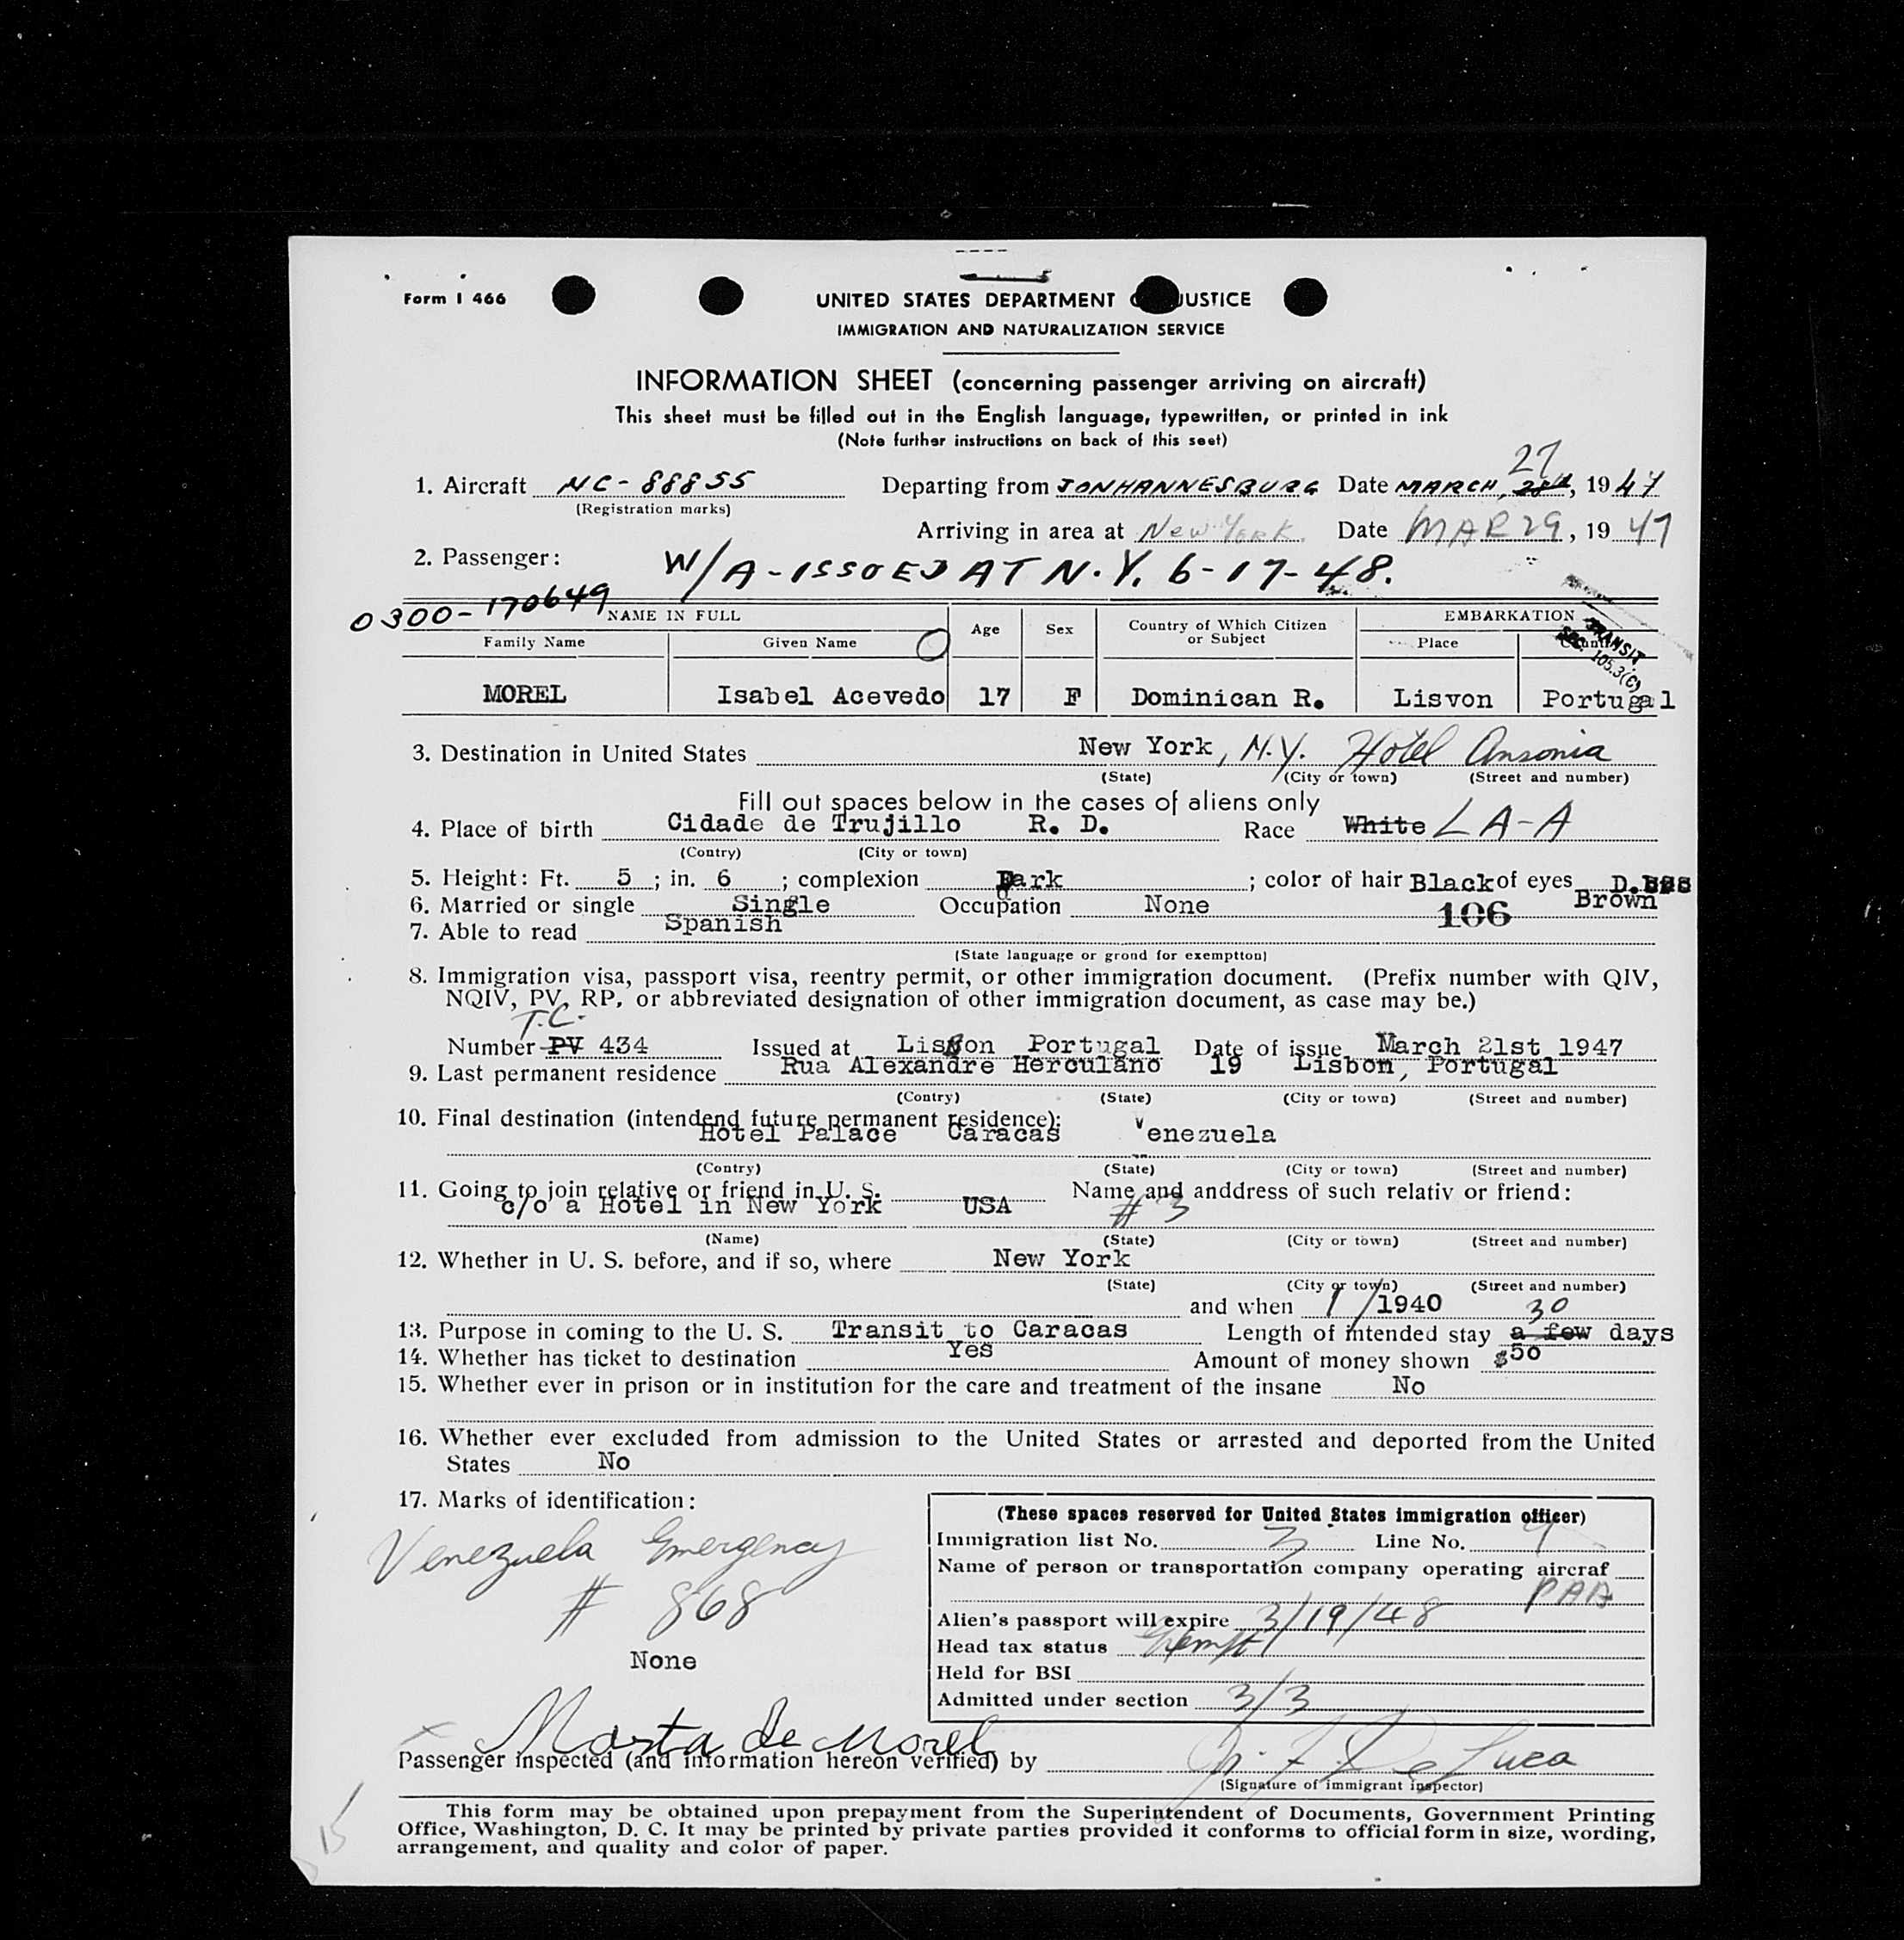 Form I 466
UNITED STATES DEPARTMENT JUSTICE
IMMIGRATION AND NATURALIZATION SERVICE
INFORMATION SHEET (concerning passenger arriving on aircraft)
This sheet must be filled out in the English language, typewritten, or printed in ink
(Note further instructions on back of this seet)
27
1. Aircraft NC-88855 Departing from JONHANNESBURG Date MARCH, 28th, 1947
(Registration marks)
Arriving in area at New York Date MAR 29, 1947
2. Passenger: W/A-ISSUED AT N.Y. 6-17-48.
0300-170649
NAME IN FULL Age Sex Country of Which Citizen or Subject EMBARKATION
Family Name Given Name Place Country
TRANSIT
SEC. 105.3(C)
MOREL Isabel Acevedo 17 F Dominican R. Lisvon Portugal
3. Destination in United States New York, N.Y. Hotel Ansonia
(State) (City or town) (Street and number)
Fill out spaces below in the cases of aliens only
4. Place of birth Cidade de Trujillo R. D. Race White LA-A
(Contry) (City or town)
5. Height: Ft. 5 ; in. 6 ; complexion Dark ; color of hair Black of eyes D.
6. Married or single Single Occupation None 106 Brown
7. Able to read Spanish
(State language or grond for exemptton)
8. Immigration visa, passport visa, reentry permit, or other immigration document. (Prefix number with QIV,
NQIV, PV, RP, or abbreviated designation of other immigration document, as case may be.)
T.C.
Number PV 434 Issued at Lisbon Portugal Date of issue March 21st 1947
9. Last permanent residence Rua Alexandre Herculano 19 Lisbon, Portugal
(Contry) (State) (City or town) (Street and number)
10. Final destination (intendend future permanent residence):
Hotel Palace Caracas Venezuela
(Contry) (State) (City or town) (Street and number)
11. Going to join relative or friend in U. S. Name and anddress of such relativ or friend:
c/o a Hotel in New York USA # 3
(Name) (State) (City or town) (Street and number)
12. Whether in U. S. before, and if so, where New York
(State) (City or town) (Street and number)
and when 1/1940
30
13. Purpose in coming to the U. S. Transit to Caracas Length of intended stay a few days
14. Whether has ticket to destination Yes Amount of money shown $50
15. Whether ever in prison or in institution for the care and treatment of the insane No
16. Whether ever excluded from admission to the United States or arrested and deported from the United
States No
17. Marks of identification:
Venezuela Emergency
# 868
None
(These spaces reserved for United States immigration officer)
Immigration list No. 3 Line No. 9
Name of person or transportation company operating aircraf
PAA
Alien's passport will expire 3/19/48
Head tax status Exempt
Held for BSI
Admitted under section 3/3
x Marta de Morel
Passenger inspected (and information hereon verified) by De Luca
(Signature of immigrant inspector)
This form may be obtained upon prepayment from the Superintendent of Documents, Government Printing
Office, Washington, D. C. It may be printed by private parties provided it conforms to official form in size, wording,
arrangement, and quality and color of paper.